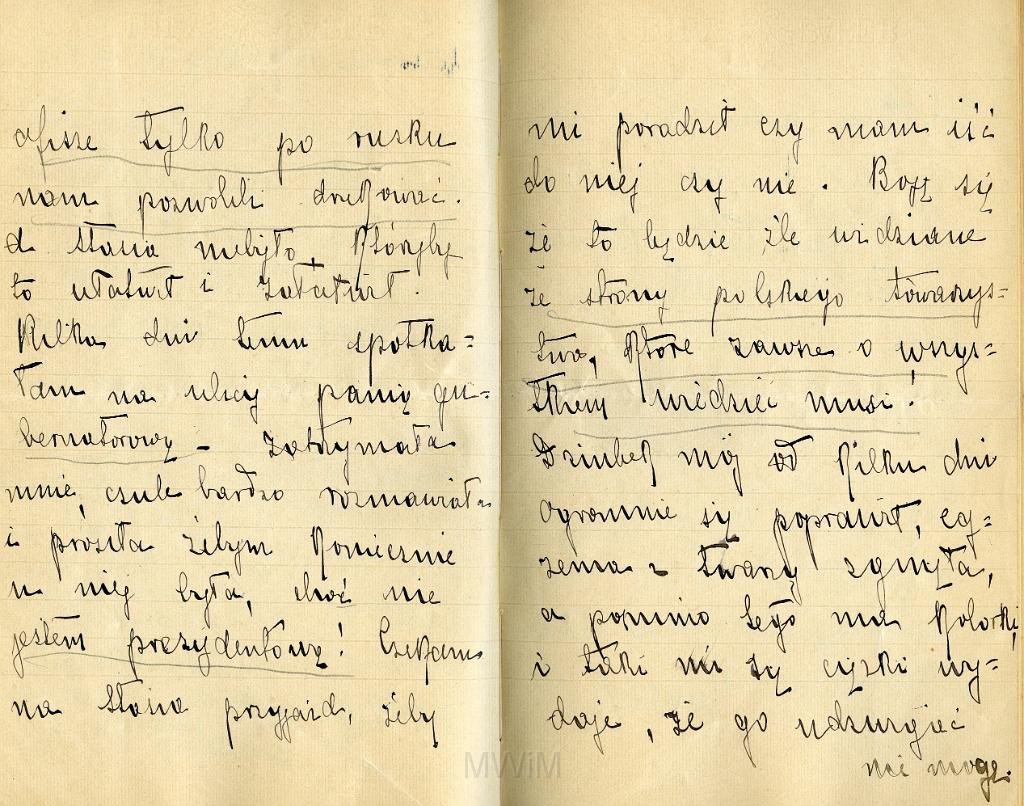 afisze tylko po rusku
nam pozwolili drukować.
a Stasia niebyło, któryby
to ułatwił i załatwił.
Kilka dni temu spotka=
łam na ulicy panią gu=
bernatorową – zatrzymała
mnie, czule bardzo rozmawiała
i prosiła żebym koniecznie
u niej była, choć nie
jestem prezydentową! Czekam
na Stasia przyjazd, żeby
mi poradził czy mam iść
do niej czy nie. Boję się
że to będzie źle widziane
ze strony polskiego towarzys=
twa, które zawsze o wszys=
tkiem wiedzieć musi!
Dziubek mój od kilku dni
ogromnie się poprawił, eg=
zema z twarzy zginęła,
a pomimo tego ma kolorki,
i taki mi się ciężki wy=
daje, że go udzwignąć
nie mogę.
MWiM